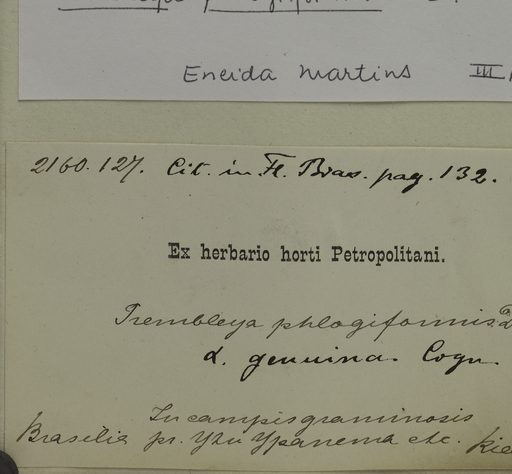 Eneida Martins III
2160.127. Cit. in Fl. Bras. pag. 132.
Ex herbario horti Petropolitani.
Trembleya phlogiformis D
α. genuina. Cogn.
In campis graminosis
Brasilia pr. Ytu Ypanema etc. Rie